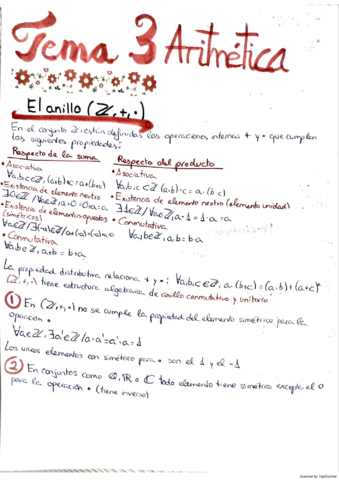 Tema 3 Aritmética
El anillo (ℤ,+,·)
En el conjunto ℤ están definidas las operaciones internas + y · que cumplen
las siguientes propiedades:
Respecto de la suma
• Asociativa
∀a,b,c∈ℤ, (a+b)+c=a+(b+c)
• Existencia de elemento neutro
∃0∈ℤ/∀a∈ℤ, a+0=0+a=a
• Existencia de elementos opuestos
(simétricos)
∀a∈ℤ/∃(-a)∈ℤ/a+(-a)=(-a)+a=0
• Conmutativa
∀a,b∈ℤ, a+b=b+a
Respecto del producto
• Asociativa
∀a,b,c∈ℤ (a·b)·c=a·(b·c)
• Existencia de elemento neutro (elemento unidad)
∃1∈ℤ/∀a∈ℤ, a·1=1·a=a
• Conmutativa
∀a,b∈ℤ, a·b=b·a
La propiedad distributiva relaciona + y ·: ∀a,b,c∈ℤ, a·(b+c)=(a·b)+(a·c)
(ℤ,+,·) tiene estructura algebraica de anillo conmutativo y unitario
1 En (ℤ,+,·) no se cumple la propiedad del elemento simétrico para la
operación ·
∀a∈ℤ, ∃a'∈ℤ/a·a'=a'·a=1
Los unicos elementos con simétrico para · son el 1 y el -1
2 En conjuntos como ℚ, ℝ o ℂ todo elemento tiene simétrico excepto el 0
para la operación · (tiene inverso)
Scanned by TapScanner